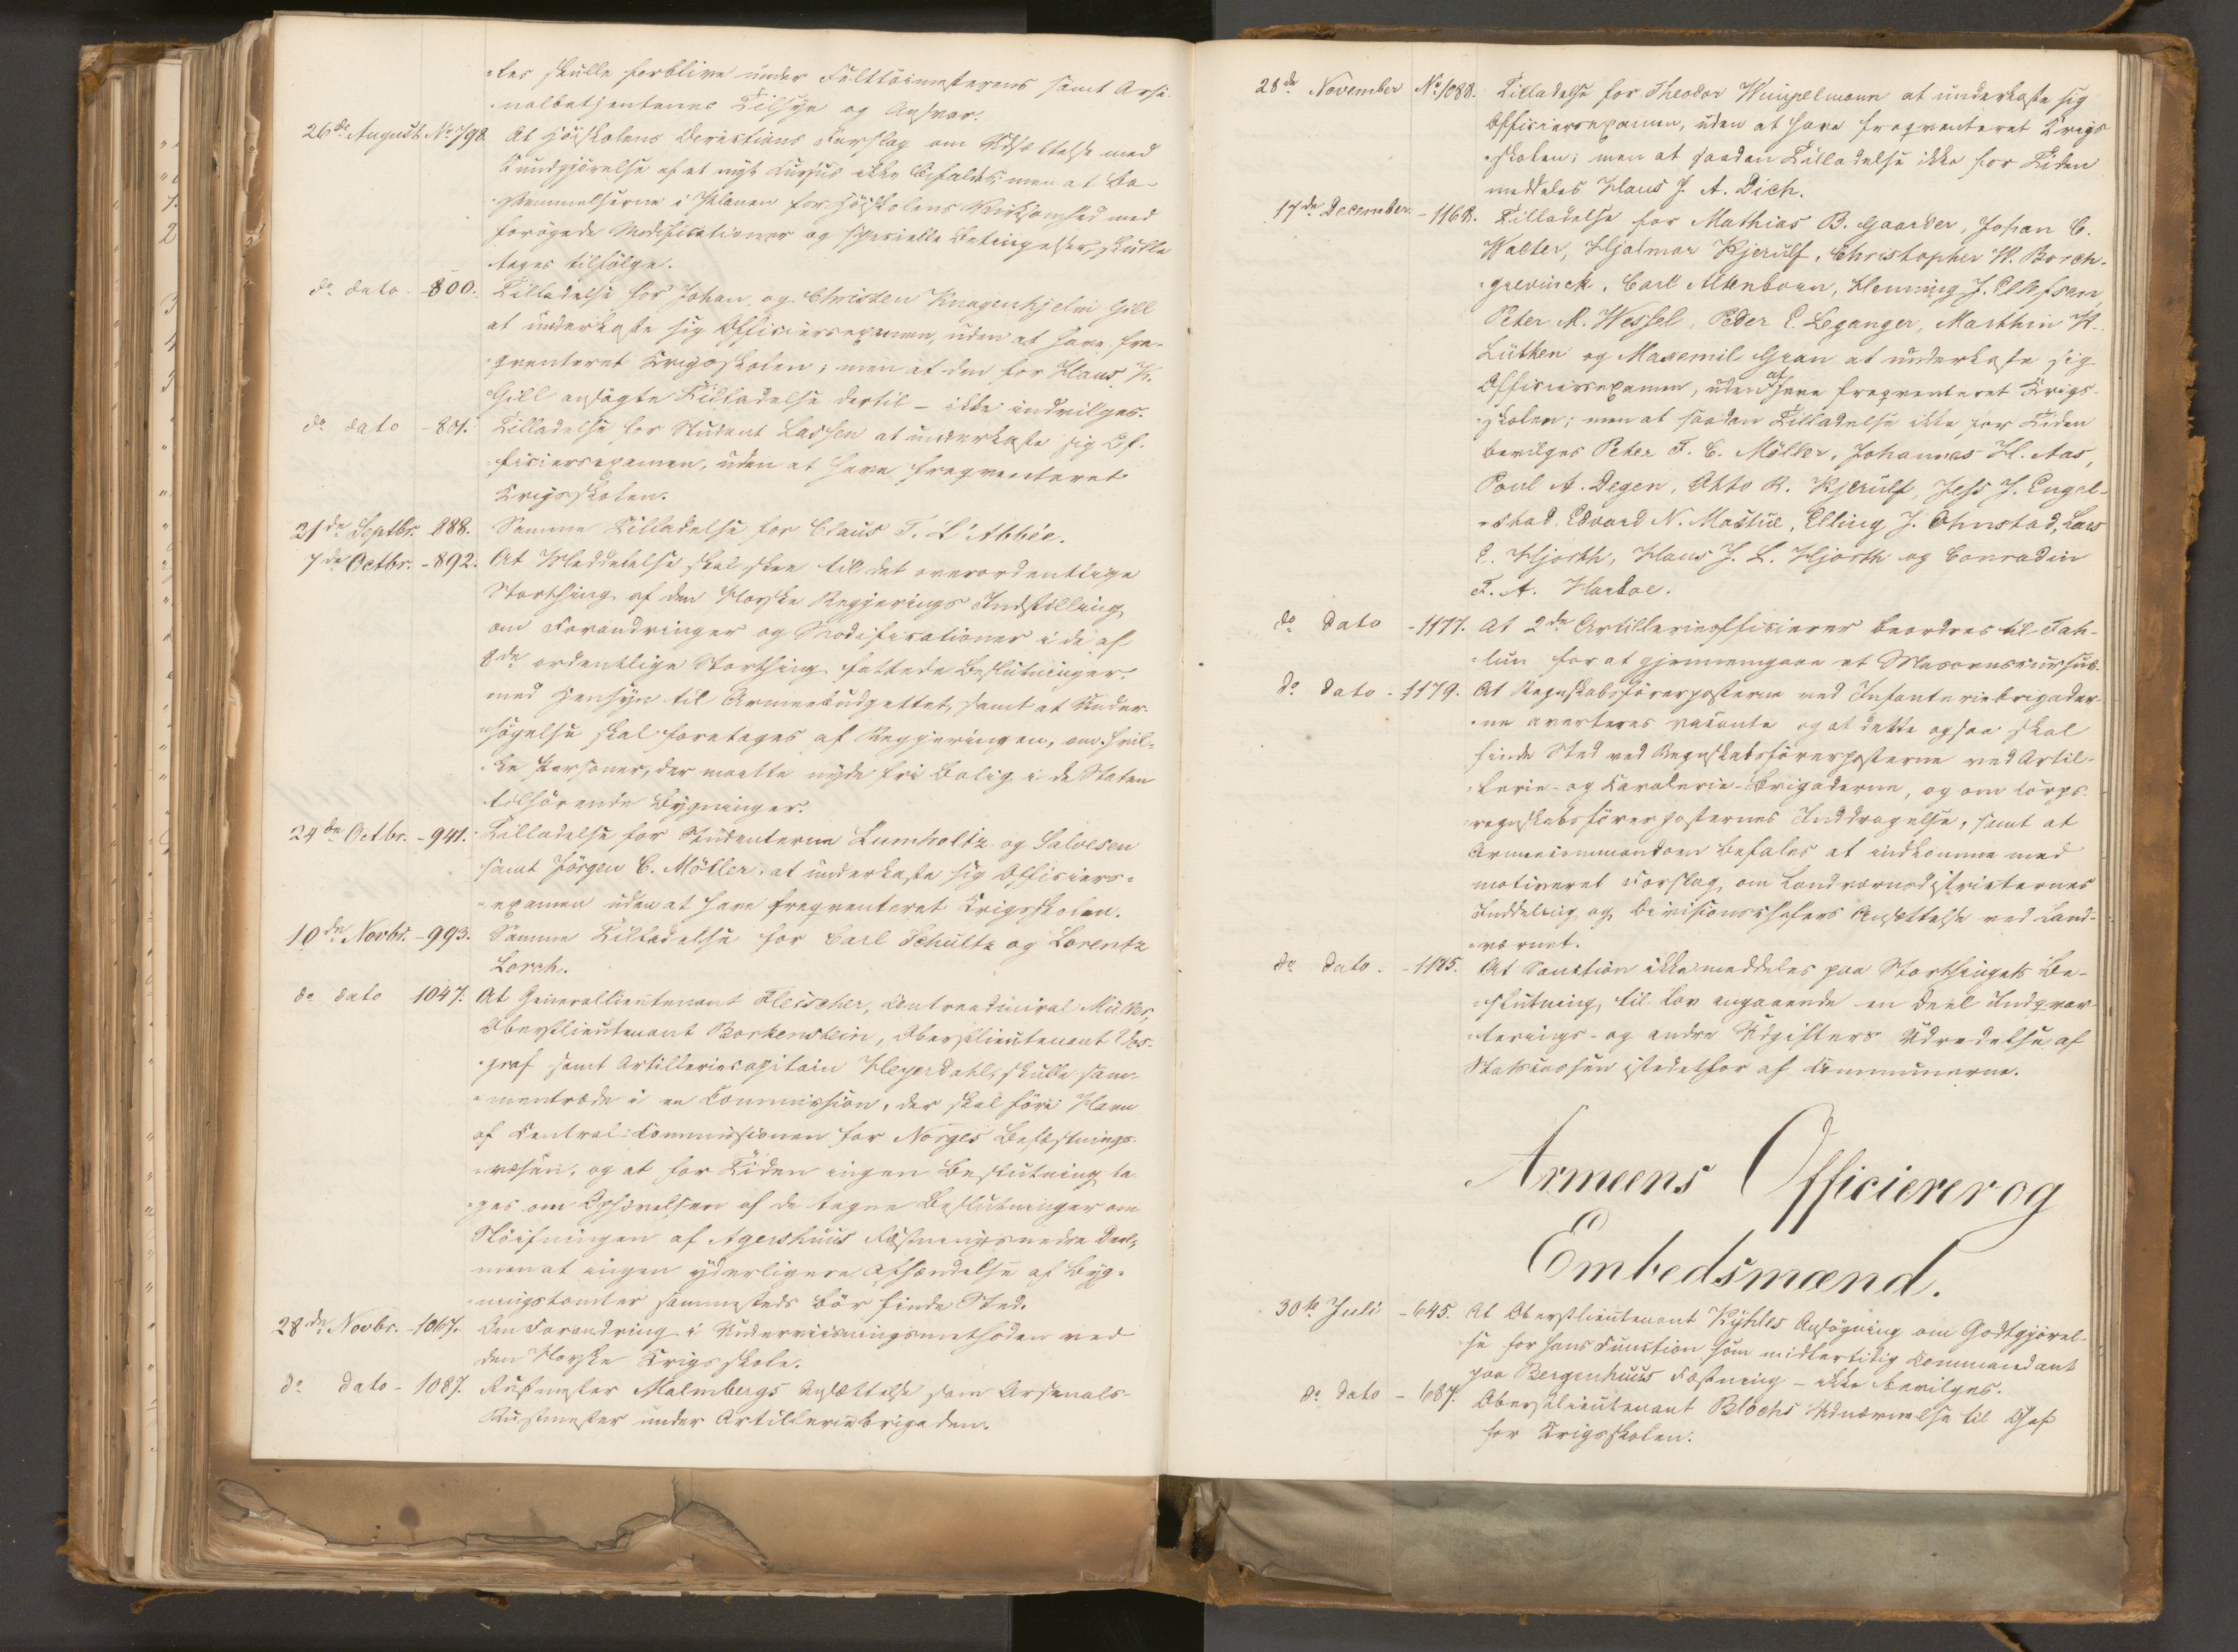 -tes skulle forblive under Felttöimesterens samt Arse-
-nalbetjentenes Tilsyn og Ansvar.
26de August No 798. At Höiskolens Directions Forslag om Udsættelse med
Kundgjörelse af et nyt Cursus ikke bifaldes; men at Be-
-stemmelserne i Planen for Höiskolens Virksomhed med
forögede Modificationer og specielle Betingelser, skulle
tages tilfölge.
do dato - 800. Tilladelse for Johan og Christen Knagenhjelm Gill
at underkaste sig Officiersexamen, uden at have fre-
-qventeret Krigsskolen; men at den for Hans K.
Gill ansögte Tilladelse dertil - ikke indvilges.
do dato - 801. Tilladelse for Student Lassen at underkaste sig Of-
-ficiersexamen, uden at have freqventeret
Krigsskolen.
21de Septbr. - 888. Samme Tilladelse for Claus T. L'Abbée.
7de Octbr. - 892. At Meddelelse skal skee til det overordentlige
Storthing af den Norske Regjerings Indstilling,
om Forandringer og Modificationer i de af
8de ordentlige Storthing fattede Beslutninger,
med Hensyn til Armeebudgettet, samt at Under-
-sögelse skal foretages af Regjeringen, om hvil-
-ke Personer, der maatte nyde fri Bolig i de Staten
tilhörende Bygninger.
24de Octbr. - 941. Tilladelse for Studenterne Lumholtz og Salvesen
samt Jörgen C. Möller, at underkaste sig Officiers-
-examen uden at have freqventeret Krigsskolen.
10de Novbr. - 993. Samme Tilladelse for Carl Schultz og Lorentz
Lorch.
do dato 1047. At Generallieutenant Fleischer, Contreadmiral Müller,
Oberstlieutenant Borkenstein, Oberstlieutenant Vos-
-graf samt Artilleriecapitain Heyerdahl, skulle sam-
-mentræde i en Commission, der skal före Navn
af Central-Commissionen for Norges Befæstnings-
-væsen, og at for Tiden ingen Beslutning ta-
-ges om Ophævelsen af de tagne Beslutninger om
Slöifningen af Agershuus Fæstnings nedre Deel,
men at ingen yderligere Afhændelse af Byg-
-ningstomter sammesteds bör finde Sted.
28de Novbr. - 1067. Om Forandring i Underviisningsmethoden ved
den Norske Krigsskole.
do dato - 1087. Rustmester Malmbergs Ansættelse som Arsenals-
Rustmester under Artilleriebrigaden.
28de November No 1088. Tilladelse for Theodor Wimpelmann at underkaste sig
Officiersexamen, uden at have freqventeret Krigs-
-skolen; men at saadan Tilladelse ikke for Tiden
meddeles Hans J. A. Dich.
17de December - 1168. Tilladelse for Mathias B. Gaarder, Johan C.
Walter, Hjalmar Kjerulf, Christopher W. Borch-
-grevinck, Carl Altenborn, Henning J. Ellefsen,
Peter M. Wessel, Peder C. Leganger, Marthin W.
Lütken og Maxemil Gran at underkaste sig
Officiersexamen, uden at have freqventeret Krigs-
-skolen; men at saadan Tilladelse ikke for Tiden
bevilges Peter F. C. Möller, Johannes H. Aas,
Poul A. Degen, Otto R. Kjerulf, Jess J. Engel-
-stad, Edvard N. Mastue, Elling J. Ohnstad, Lars
C. Hjorth, Hans J. L. Hjorth og Conradin
F. A. Harboe.
do dato - 1177. At 2de Artillerieofficierer beordres til Fah-
-lun for at gjennemgaae et Masovnscursus.
do dato - 1179. At Regnskabsförerposterne ved Infanteriebrigader-
-ne averteres vacante og at dette ogsaa skal
finde Sted ved Regnskabsförerposterne ved Artil-
-lerie- og Cavalerie-Brigaderne, og om Corps-
-regnskabsförerposternes Inddragelse, samt at
Armeecommandoen befales at indkomme med
motiveret Forslag, om Landværnsdistricternes
Inddeling og Divisionschefers Ansættelse ved Land-
-værnet.
do dato - 1185. At Sanction ikke meddeles paa Storthingets Be-
-slutning, til Lov angaaende en Deel Indqvar-
-terings- og andre Udgifters Udredelse af
Statscassen istedetfor af Communerne.
Armeens Officierer og
Embedsmænd.
30te Juli - 645. At Oberstlieutenant Kyhles Ansögning om Godtgjörel-
-se for hans Function som midlertidig Commandant
paa Bergenhuus Fæstning - ikke bevilges.
do dato - 687. Oberstlieutenant Blochs Udnævnelse til Chef
for Krigsskolen.